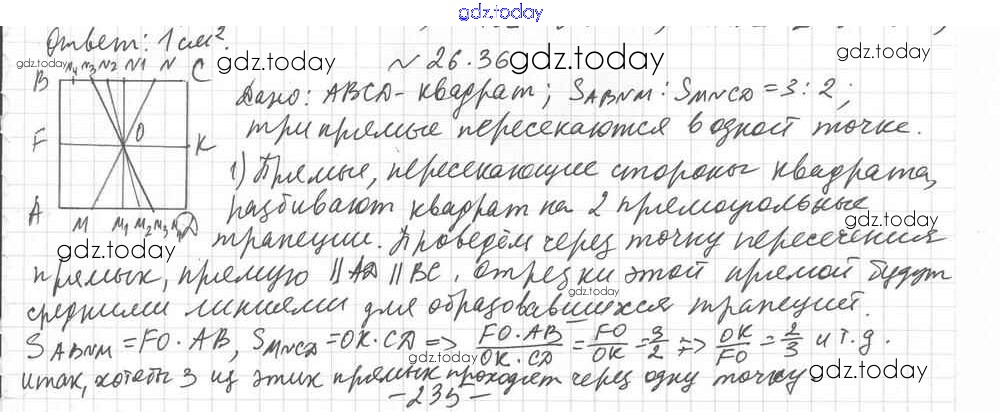 gdz.today
Ответ: 1 см².
gdz.today
№ 26.36 gdz.today
B N4 N3 N2 N1 N C
F O K
A M M1 M2 M3 M4 D
Дано: ABCD - квадрат; S ABNM : S MNCD = 3 : 2;
три прямые пересекаются в одной точке.
1) Прямые, пересекающие стороны квадрата,
разбивают квадрат на 2 прямоугольные
gdz.today
трапеции. Проведём через точку пересечения
gdz.today
прямых, прямую || AD || BC. Отрезки этой прямой будут
gdz.today
средними линиями для образовавшихся трапеций.
S ABNM = FO · AB, S MNCD = OK · CD => FO · AB / OK · CD = FO / OK = 3/2 => OK / FO = 2/3 и т.д.
gdz.today
итак, хотябы 3 из этих прямых проходят через одну точку
gdz.today
- 235 -